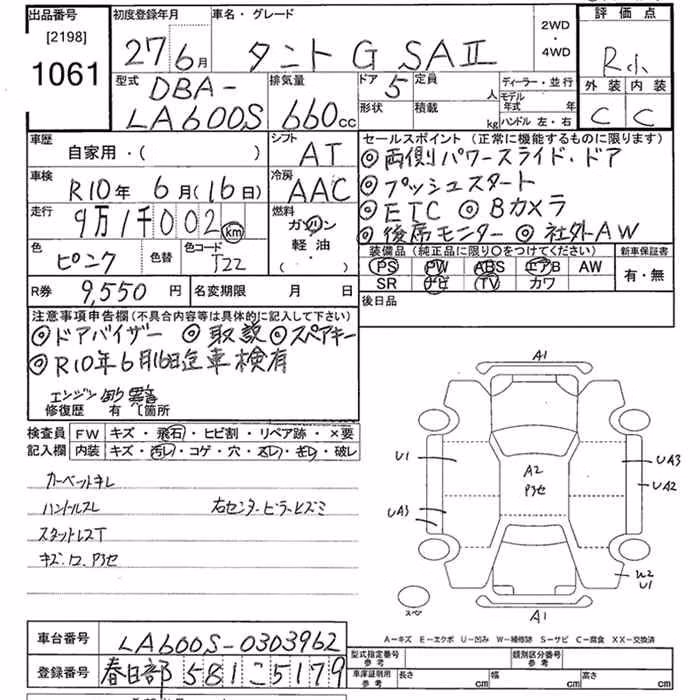 出品番号
[2198]
1061
初度登録年月
27年6月
車名・グレード
タント G SAⅡ
2WD
・
4WD
評価点
R小
外装 内装
C C
型式
DBA-
LA600S
排気量
660cc
ドア 5 定員 人
形状 積載 kg
ディーラー・並行
モデル年式 年
ハンドル 左・右
車歴
自家用・( )
シフト
AT
車検
R10年 6月(16日)
冷房
AAC
走行
9万1千002km
燃料
ガソリン
軽油
( ・ )
色
ピンク
色替
色コード
T22
R券 9,550円
名変期限 月 日
セールスポイント(正常に機能するものに限ります)
◎両側パワースライド・ドア
◎プッシュスタート
◎ETC ◎Bカメラ
◎後席モニター ◎社外AW
装備品(純正品に限り○をつけてください)
PS PW ABS エアB AW
SR ナビ TV カワ
新車保証書
有・無
後日品
注意事項申告欄(不具合内容等は具体的に記入して下さい)
◎ドアバイザー ◎取説 ◎スペアキー
◎R10年6月16日迄車検有
エンジン
修復歴 有( )箇所
検査員
記入欄
FW キズ・飛石・ヒビ割・リペア跡・×要
内装 キズ・汚レ・コゲ・穴・スレ・キレ・破レ
カーペットキレ
ハンドルスレ 右センターピラーヒズミ
スタットレスT
キズ.ワ.アセ
A1
U1
UA3
A2
アセ
UA3
UA2
W2
U1
スペ
A1
A-キズ E-エクボ U-凹み W-補修跡 S-サビ C-腐食 XX-交換済
車台番号
LA600S-0303962
登録番号
春日部581こ5179
型式指定番号
参考
類別区分番号
参考
車庫証明用
参考
長さ cm 幅 cm 高さ cm